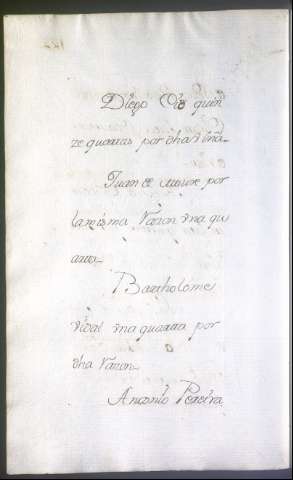 Diego Vio quin
ze quartas por dha viña
Juan de por
la misma razon vna qu
arta
Bartholome
vidal vna quarta por
dha razon
Antonio Pereira